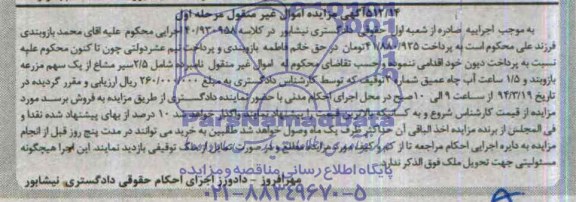 آگهی مزایده اموال غیر منقول مرحله اول
به موجب اجراییه صادره از شعبه اول حقوقی دادگستری نیشابور در کلاسه ۹۳۰۹۵۸ اجرایی محکوم علیه آقای محمد بازوبندی
فرزند علی محکوم است به پرداخت تومان در حق خانم فاطمه بازوبندی و پرداخت نیم عشر دولتی چون تا کنون محکوم علیه
نسبت به پرداخت دیون خود اقدامی ننموده و حسب تقاضای محکوم له اموال غیر منقول نامبرده شامل ۲/۵ سیر مشاع از یک سهم مزرعه
بازوبند و ۱/۵ ساعت آب چاه عمیق شماره توقیف که توسط کارشناس دادگستری به مبلغ ۲۶۰/۰۰۰/۰۰۰ ریال ارزیابی و مقرر گردیده در
تاریخ ۹۴/۳/۱۹ از ساعت ۹ الی ۱۰ صبح در محل اجرای احکام مدنی با حضور نماینده دادگستری از طریق مزایده به فروش برسد مورد
مزایده از قیمت کارشناس شروع و به کسانی که پیشنهاد نمایند واگذار خواهد شد ۱۰ درصد از بهای پیشنهاد شده نقدا و
فی المجلس از برنده مزایده اخذ الباقی آن حداکثر ظرف یک ماه وصول خواهد شد طالبین به خرید می توانند در مدت پنج روز قبل از انجام
مزایده به دایره اجرای احکام مراجعه تا از کم و کیف مورد مزایده مطلع و در صورت تمایل از ملک توقیفی بازدید نمایند این اجرا هیچگونه
مسئولیتی جهت تحویل ملک فوق الذکر ندارد
مهرافروز - دادورز اجرای احکام حقوقی دادگستری نیشابور
ParsNamadData
پایگاه اطلاع رسانی مناقصه و مزایده
۰۲۱-۸۸۳۴۹۶۷۰-۵